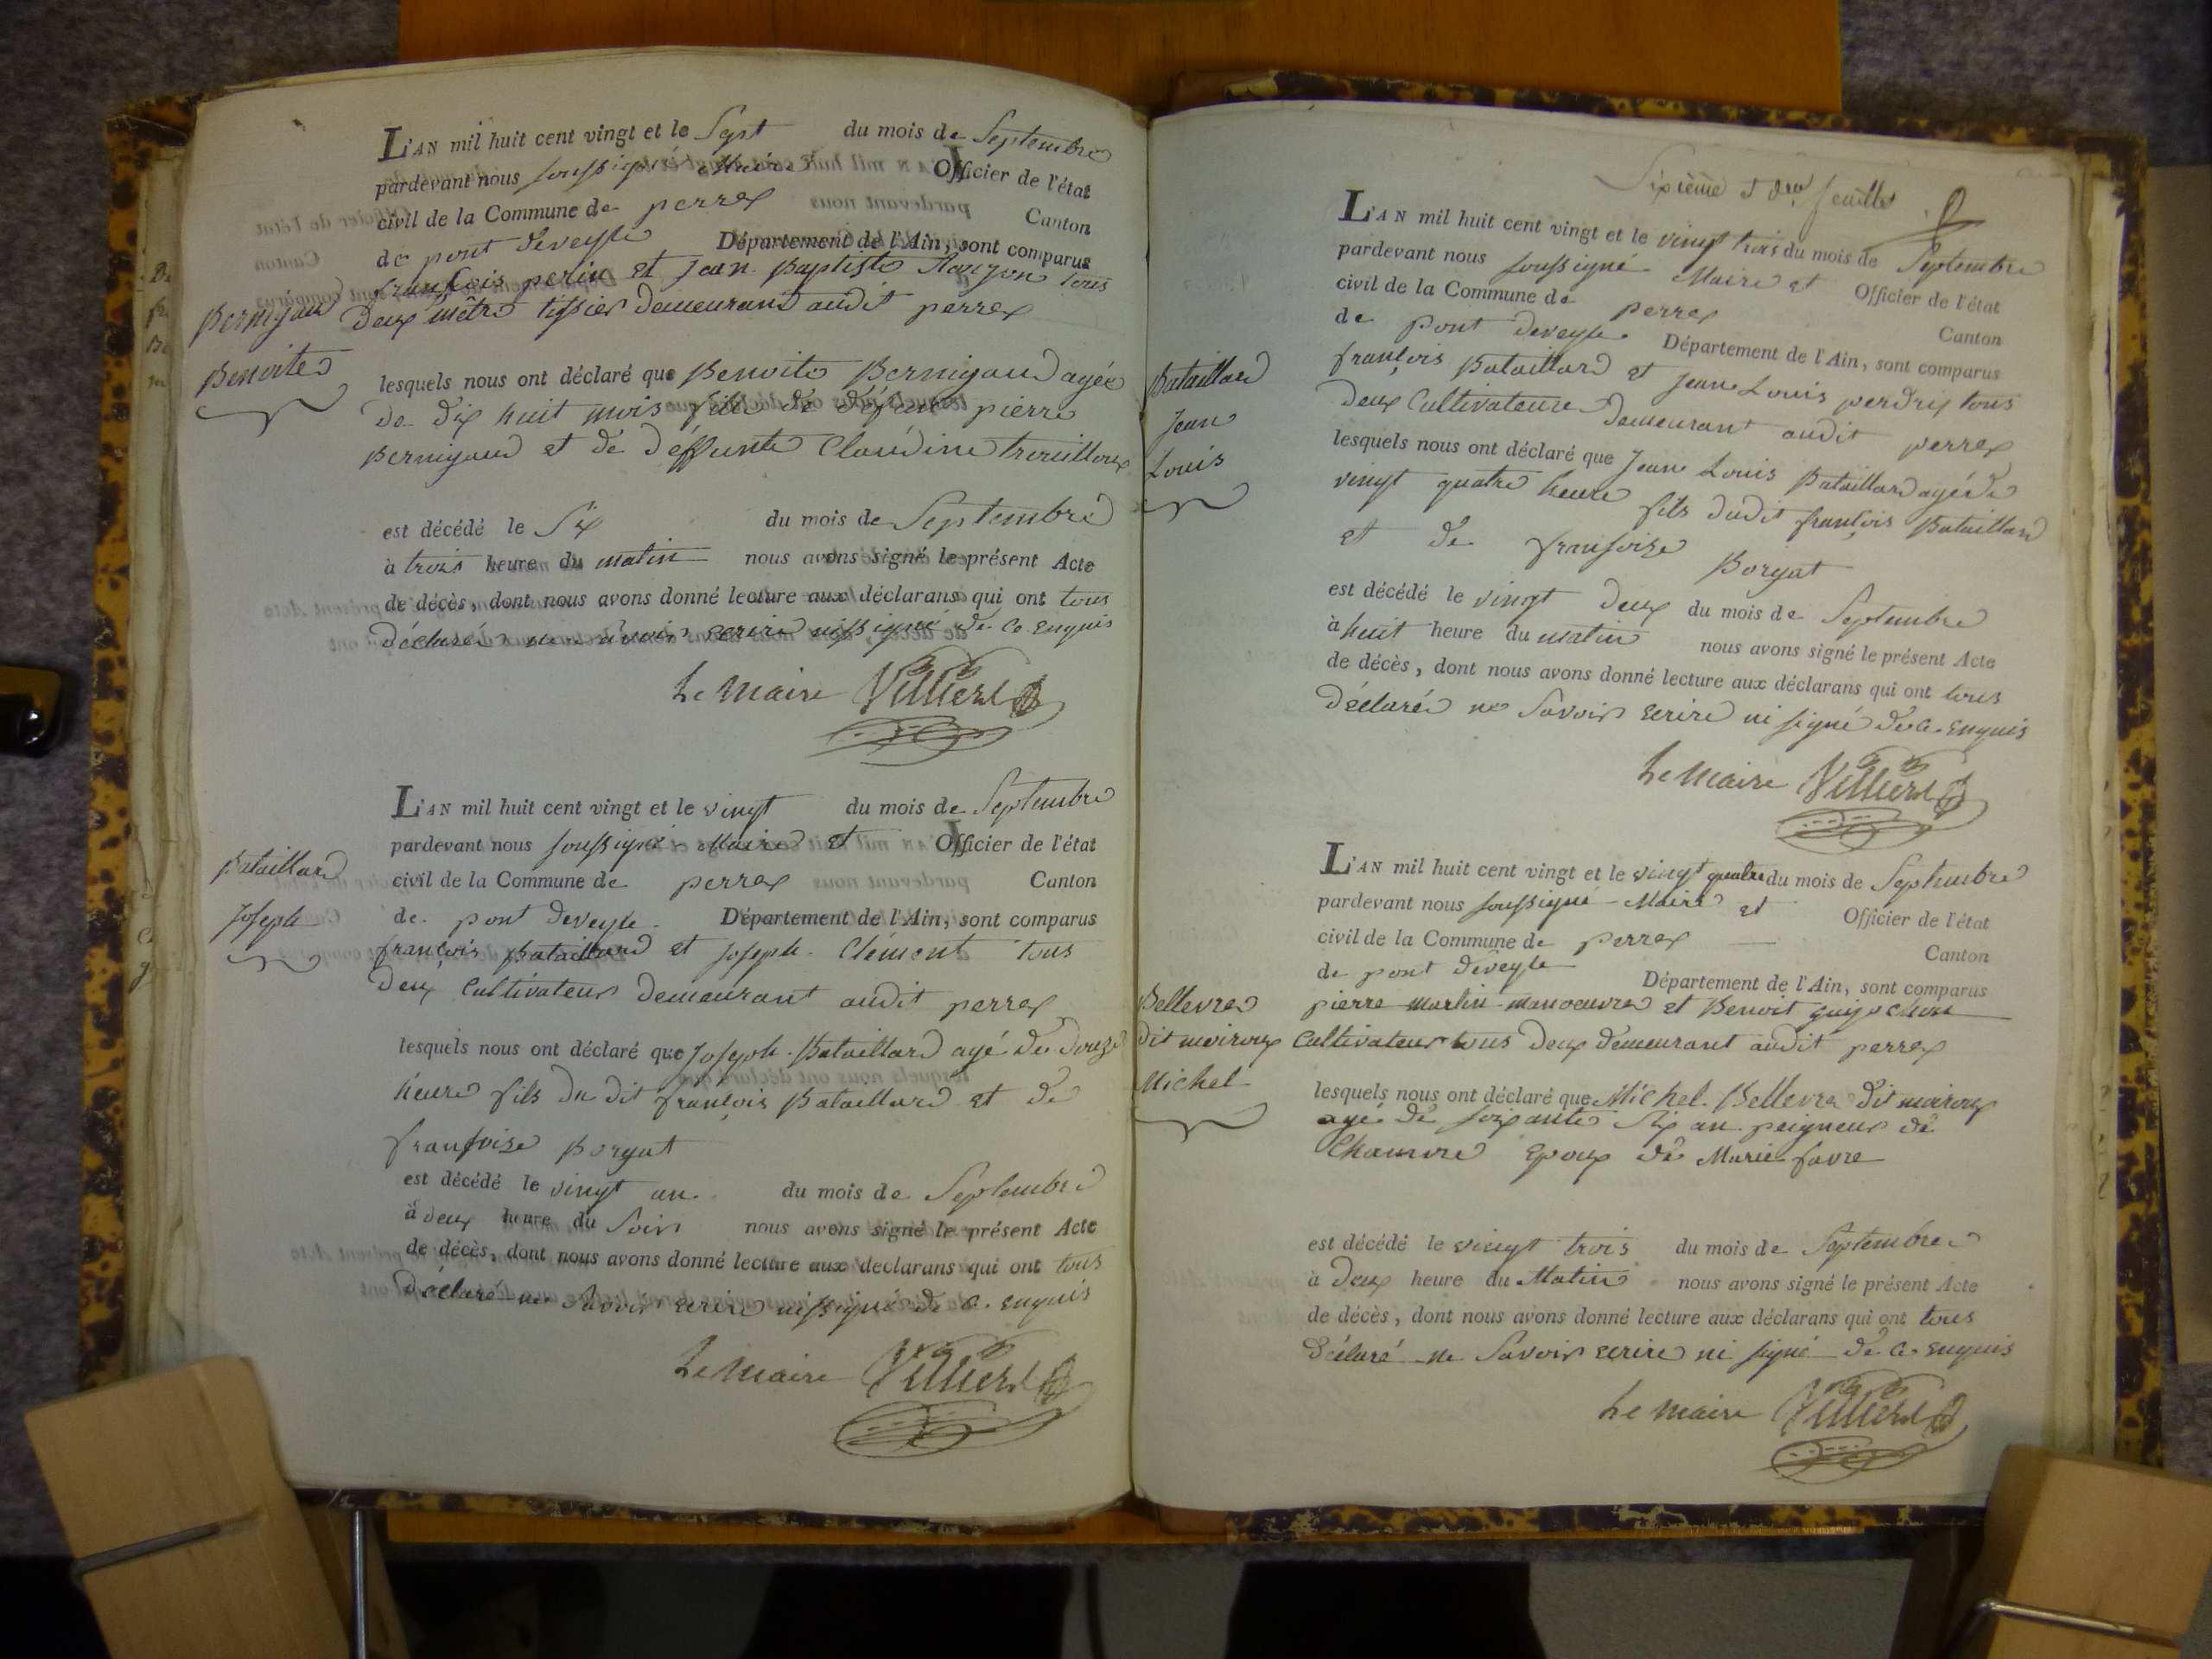 L'AN mil huit cent vingt et le Sept du mois de Septembre
pardevant nous soussigné Maire Officier de l'état
civil de la Commune de perrex Canton
de pont deveyle Département de l'Ain, sont comparus
françois perin et Jean Baptiste tous
Deux mêtre tissier demeurant audit perrex
Bernigaud
Benoite
lesquels nous ont déclaré que Benoite Bernigaud agée
de dix huit mois fille de défunt pierre
Bernigaud et de deffunte Claudine
est décédé le Six du mois de Septembre
à trois heure du matin nous avons signé le présent Acte
de décès, dont nous avons donné lecture aux déclarans qui ont tous
déclarés ne savoir ecrire ni signé de ce enquis
Le Maire
L'AN mil huit cent vingt et le vingt du mois de Septembre
pardevant nous soussigné Maire et Officier de l'état
civil de la Commune de perrex Canton
de pont deveyle Département de l'Ain, sont comparus
françois Bataillard et Joseph Clément tous
deux Cultivateur demeurant audit perrex
Bataillard
Joseph
lesquels nous ont déclaré que Joseph Bataillard agé de douze
heure fils du dit françois Bataillard et de
franfoise Borgat
est décédé le vingt un du mois de Septembre
à deux heure du Soir nous avons signé le présent Acte
de décès, dont nous avons donné lecture aux declarans qui ont tous
déclaré ne Savoir ecrire ni signé de ce enquis
Le Maire
Sixième et feuillet
L'AN mil huit cent vingt et le vingt trois du mois de Septembre
pardevant nous soussigné Maire et Officier de l'état
civil de la Commune de perrex Canton
de pont deveyle Département de l'Ain, sont comparus
françois Bataillard et Jean Louis perdrix tous
deux Cultivateur demeurant audit perrex
Bataillard
Jean
Louis
lesquels nous ont déclaré que Jean Louis Bataillard agé de
vingt quatre heure fils dudit françois Bataillard
et de franfoise Borgat
est décédé le vingt deux du mois de Septembre
à huit heure du matin nous avons signé le présent Acte
de décès, dont nous avons donné lecture aux déclarans qui ont tous
déclaré ne Savoir ecrire ni signé de ce enquis
Le Maire
L'AN mil huit cent vingt et le vingt quatre du mois de Septembre
pardevant nous soussigné Maire et Officier de l'état
civil de la Commune de perrex Canton
de pont deveyle Département de l'Ain, sont comparus
pierre martin manoeuvre et Benoit
Cultivateur tous deux demeurant audit perrex
Bellevre
dit moiroux
Michel
lesquels nous ont déclaré que Michel Bellevre dit moiroux
agé de soixante six an peigneur de
Chanvre Epoux de Marie favre
est décédé le vingt trois du mois de Septembre
à deux heure du Matin nous avons signé le présent Acte
de décès, dont nous avons donné lecture aux déclarans qui ont tous
déclaré ne Savoir ecrire ni signé de ce enquis
Le Maire